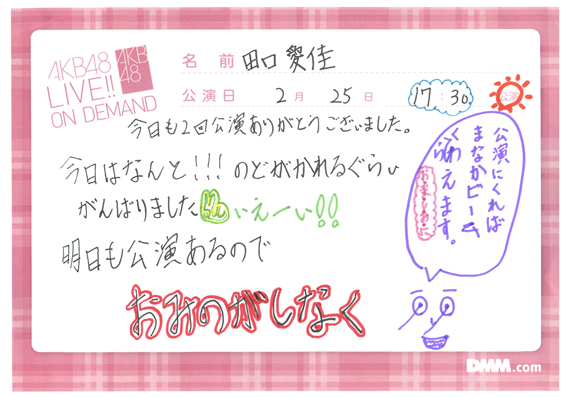 AKB48
LIVE!!
ON DEMAND
AKB
48
名前 田口愛佳
公演日 2月 25日 17:30 公演
今日も2回公演ありがとうございました。
今日はなんと!!!のどがかれるぐらい
がんばりました いぇーい!!
明日も公演あるので
おみのがしなく
公演にくれば
まなかビーム
くらわえます。
DMM.com